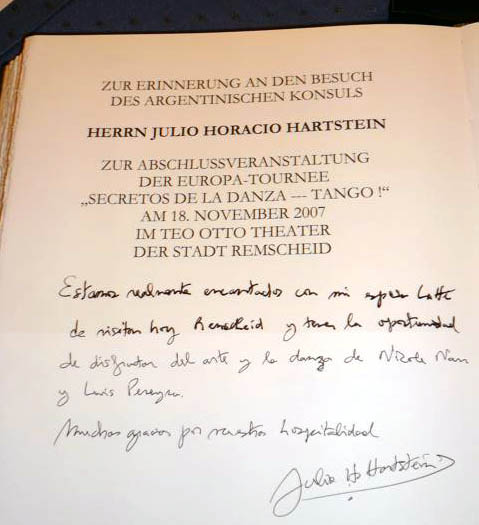 ZUR ERINNERUNG AN DEN BESUCH
DES ARGENTINISCHEN KONSULS
HERRN JULIO HORACIO HARTSTEIN
ZUR ABSCHLUSSVERANSTALTUNG
DER EUROPA-TOURNEE
„SECRETOS DE LA DANZA --- TANGO !“
AM 18. NOVEMBER 2007
IM TEO OTTO THEATER
DER STADT REMSCHEID
Estamos realmente encantados con mi esposa
de visitar hoy Remscheid y tener la oportunidad
de disfrutar del arte y la danza de Nicole Nau
y Luis Pereyra.
Muchas gracias por vuestra hospitalidad
Julio H. Hartstein